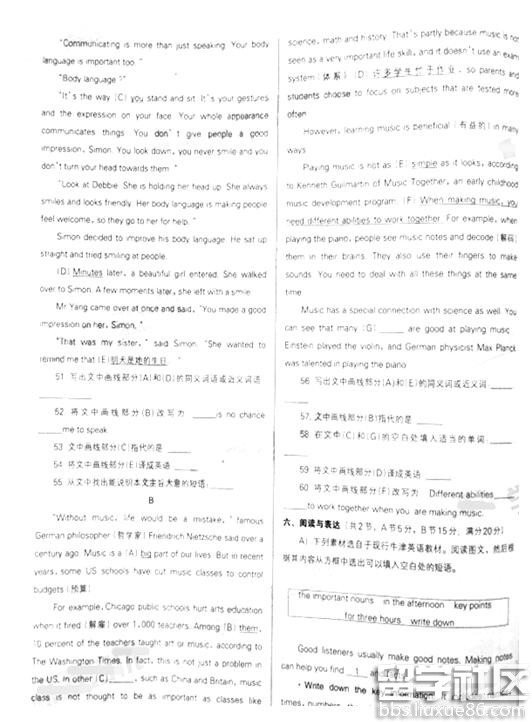 "Communicating is more than just speaking. Your body
language is important too."
"Body language?"
"It's the way (C) you stand and sit. It's your gestures
and the expression on your face. Your whole appearance
communicates things. You don't give people a good
impression, Simon. You look down, you never smile and you
don't turn your head towards them."
"Look at Debbie. She is holding her head up. She always
smiles and looks friendly. Her body language is making people
feel welcome, so they go to her for help."
Simon decided to improve his body language. He sat up
straight and tried smiling at people.
(D) Minutes later, a beautiful girl entered. She walked
over to Simon. A few moments later, she left with a smile.
Mr Yang came over at once and said, "You made a good
impression on her, Simon."
"That was my sister," said Simon. "She wanted to
remind me that (E)明天是她的生日."
51 写出文中画线部分(A)和(D)的同义词语或近义词语
52 将文中画线部分(B)改写为 _____is no chance
____me to speak.
53 文中画线部分(C)指代的是 ____
54 将文中画线部分(E)译成英语 ____
55 从文中找出能说明本文主旨大意的短语: ____
B
"Without music, life would be a mistake," famous
German philosopher (哲学家) Friendrich Nietzsche said over a
century ago. Music is a (A) big part of our lives. But in recent
years, some US schools have cut music classes to control
budgets (预算)
For example, Chicago public schools hurt arts education
when it fired (解雇) over 1,000 teachers. Among (B) them,
10 percent of the teachers taught art or music, according to
The Washington Times. In fact, this is not just a problem in
the US. In other (C)____, such as China and Britain, music
class is not thought to be as important as classes like
science, math and history. That's partly because music is not
seen as a very important life skill, and it doesn't use an exam
system (体系) (D) 许多学生忙于作业, so parents and
students choose to focus on subjects that are tested more
often
However, learning music is beneficial (有益的) in many
ways
Playing music is not as (E) simple as it looks, according
to Kenneth Guilmartin of Music Together, an early childhood
music development program. (F) When making music, you
need different abilities to work together. For example, when
playing the piano, people see music notes and decode (解码)
them in their brains. They also use their fingers to make
sounds. You need to deal with all these things at the same
time
Music has a special connection with science as well. You
can see that many (G)_____ are good at playing music
Einstein played the violin, and German physicist Max Planck
was talented in playing the piano
56 写出文中画线部分(A)和(E)的同义词或近义词: ____
57. 文中画线部分(B)指代的是 ____
58 在文中(C)和(G)的空白处填入适当的单词: ____
59 将文中画线部分(D)译成英语 ____
60 将文中画线部分(F)改写为 Different abilities____
____to work together when you are making music.
六、阅读与表达 (共2节, A节5分, B节15分; 满分20分)
A) 下列素材选自于现行牛津英语教材。阅读图文, 然后根
据其内容从方框中选出可以填入空白处的短语。
the important nouns in the afternoon key points
for three hours write down
Good listeners usually make good notes. Making notes
can help you find 1 and
• Write down the key information.
times, numbers,
留学社区
bbs.liuxue86.com